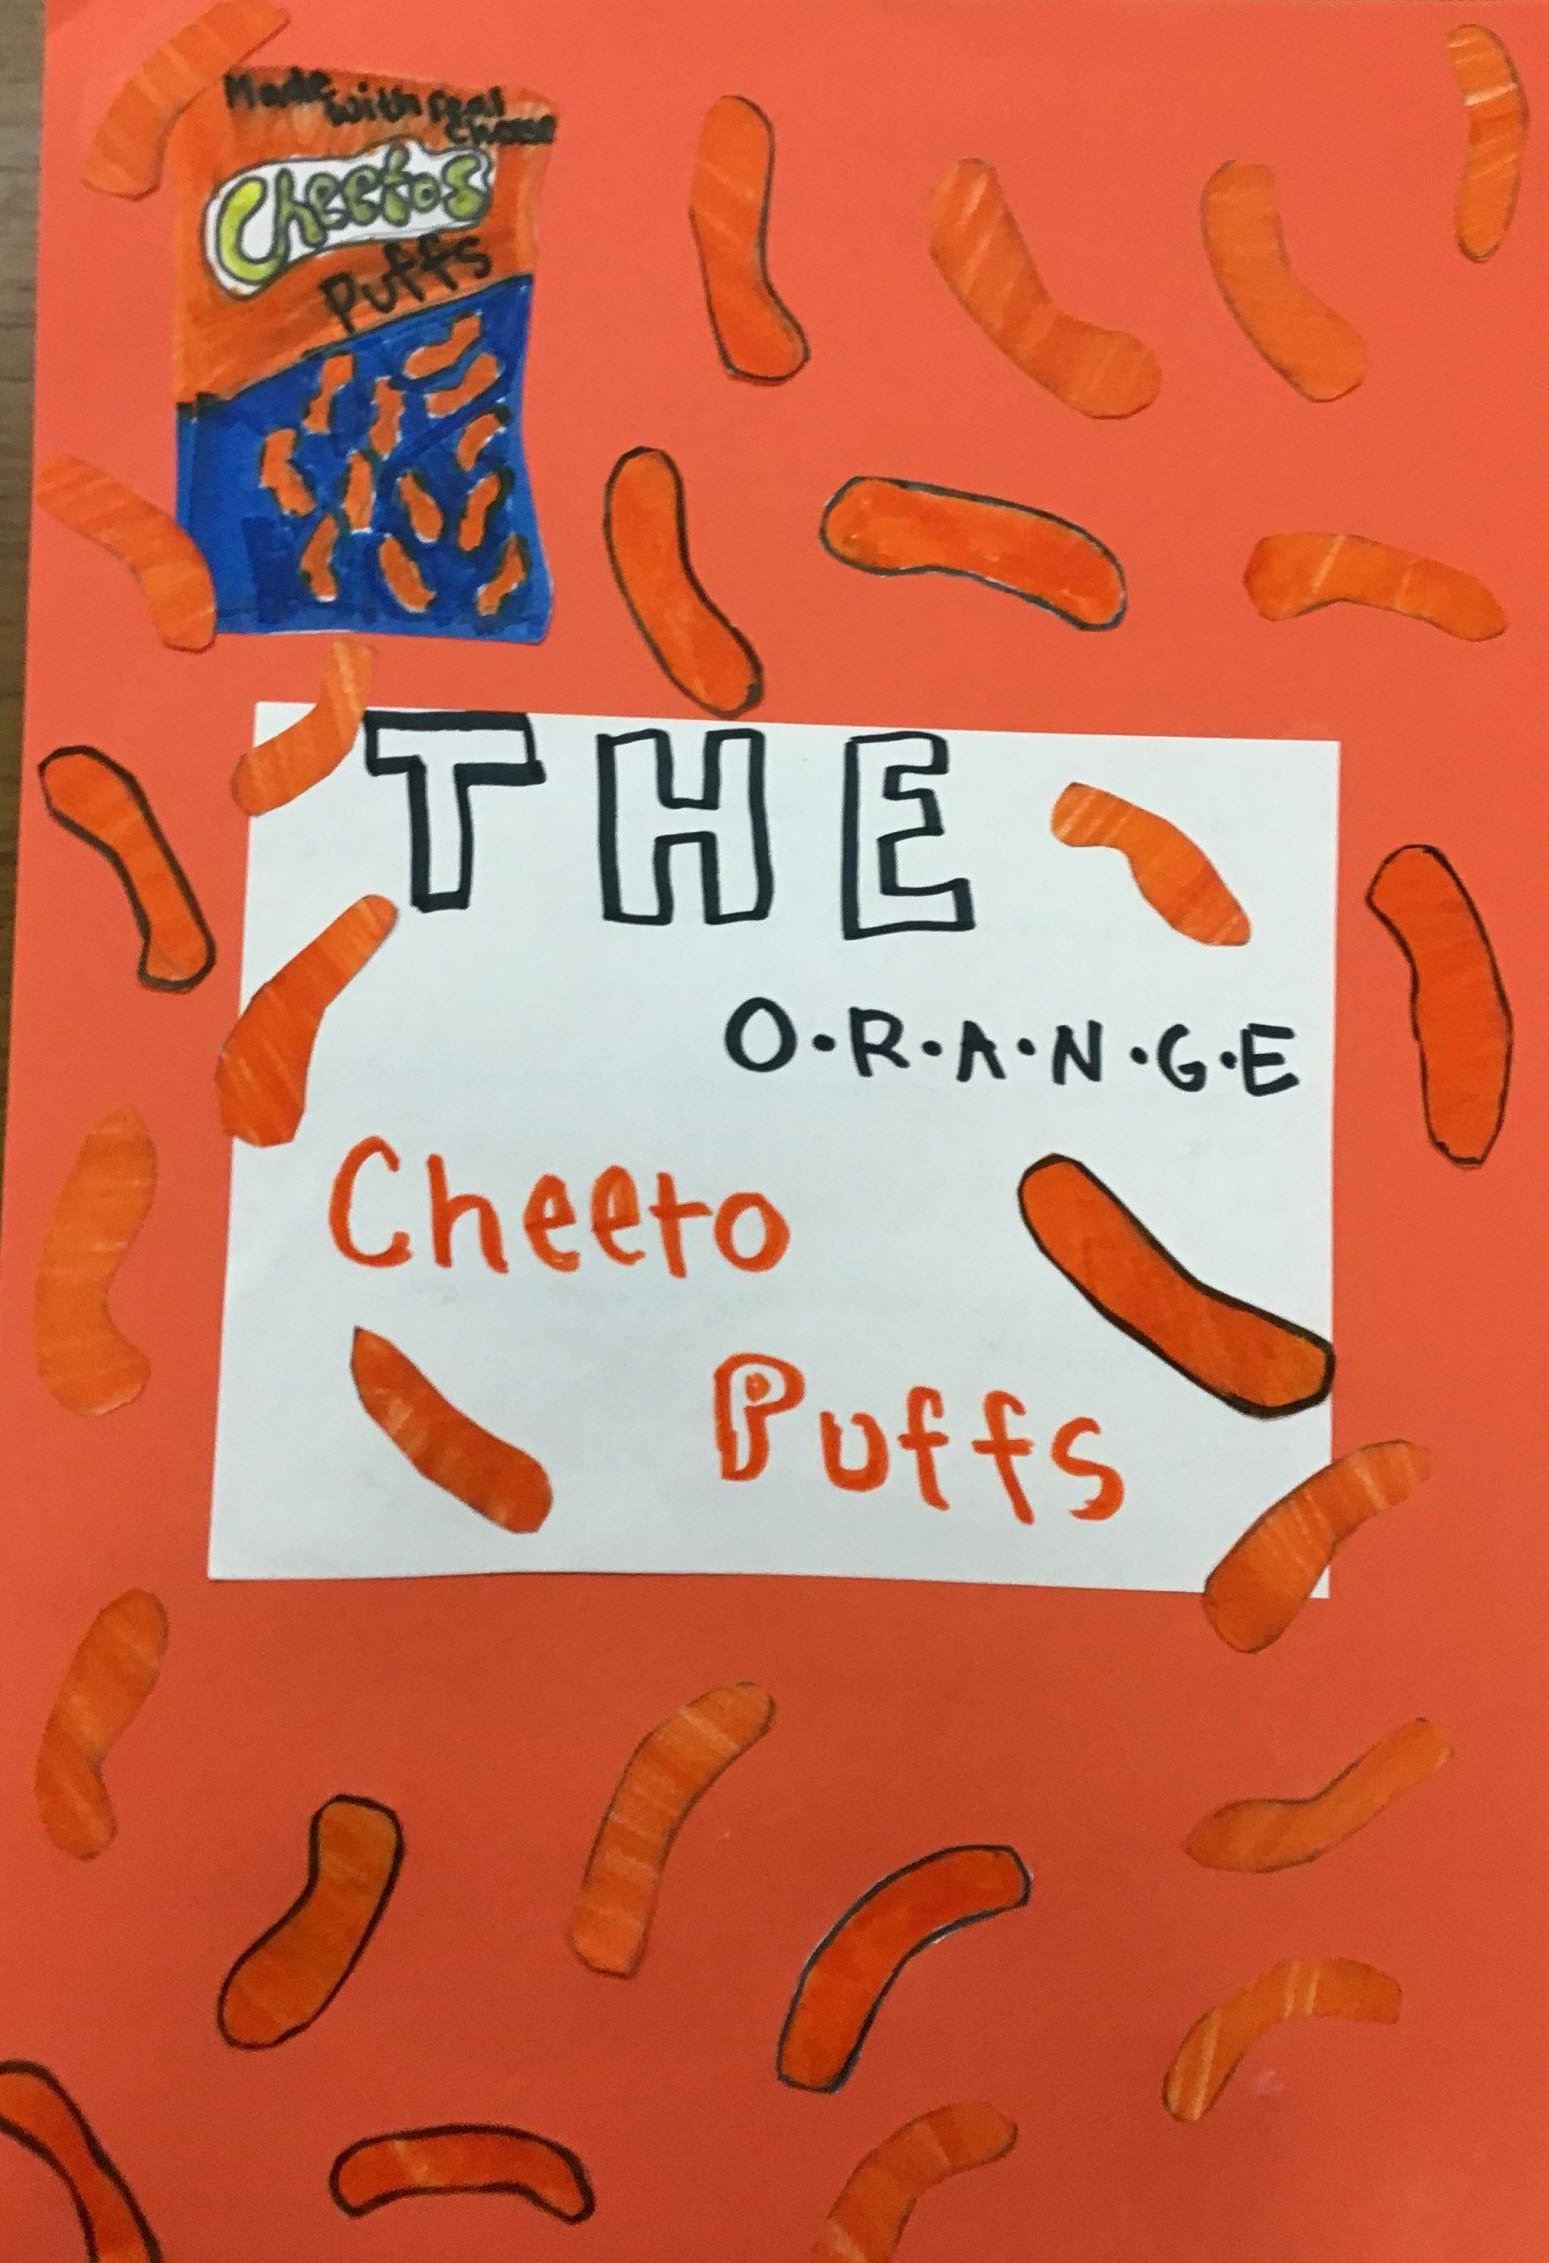 Made with real
cheese
Cheetos
Puffs
THE
O·R·A·N·G·E
Cheeto
Puffs